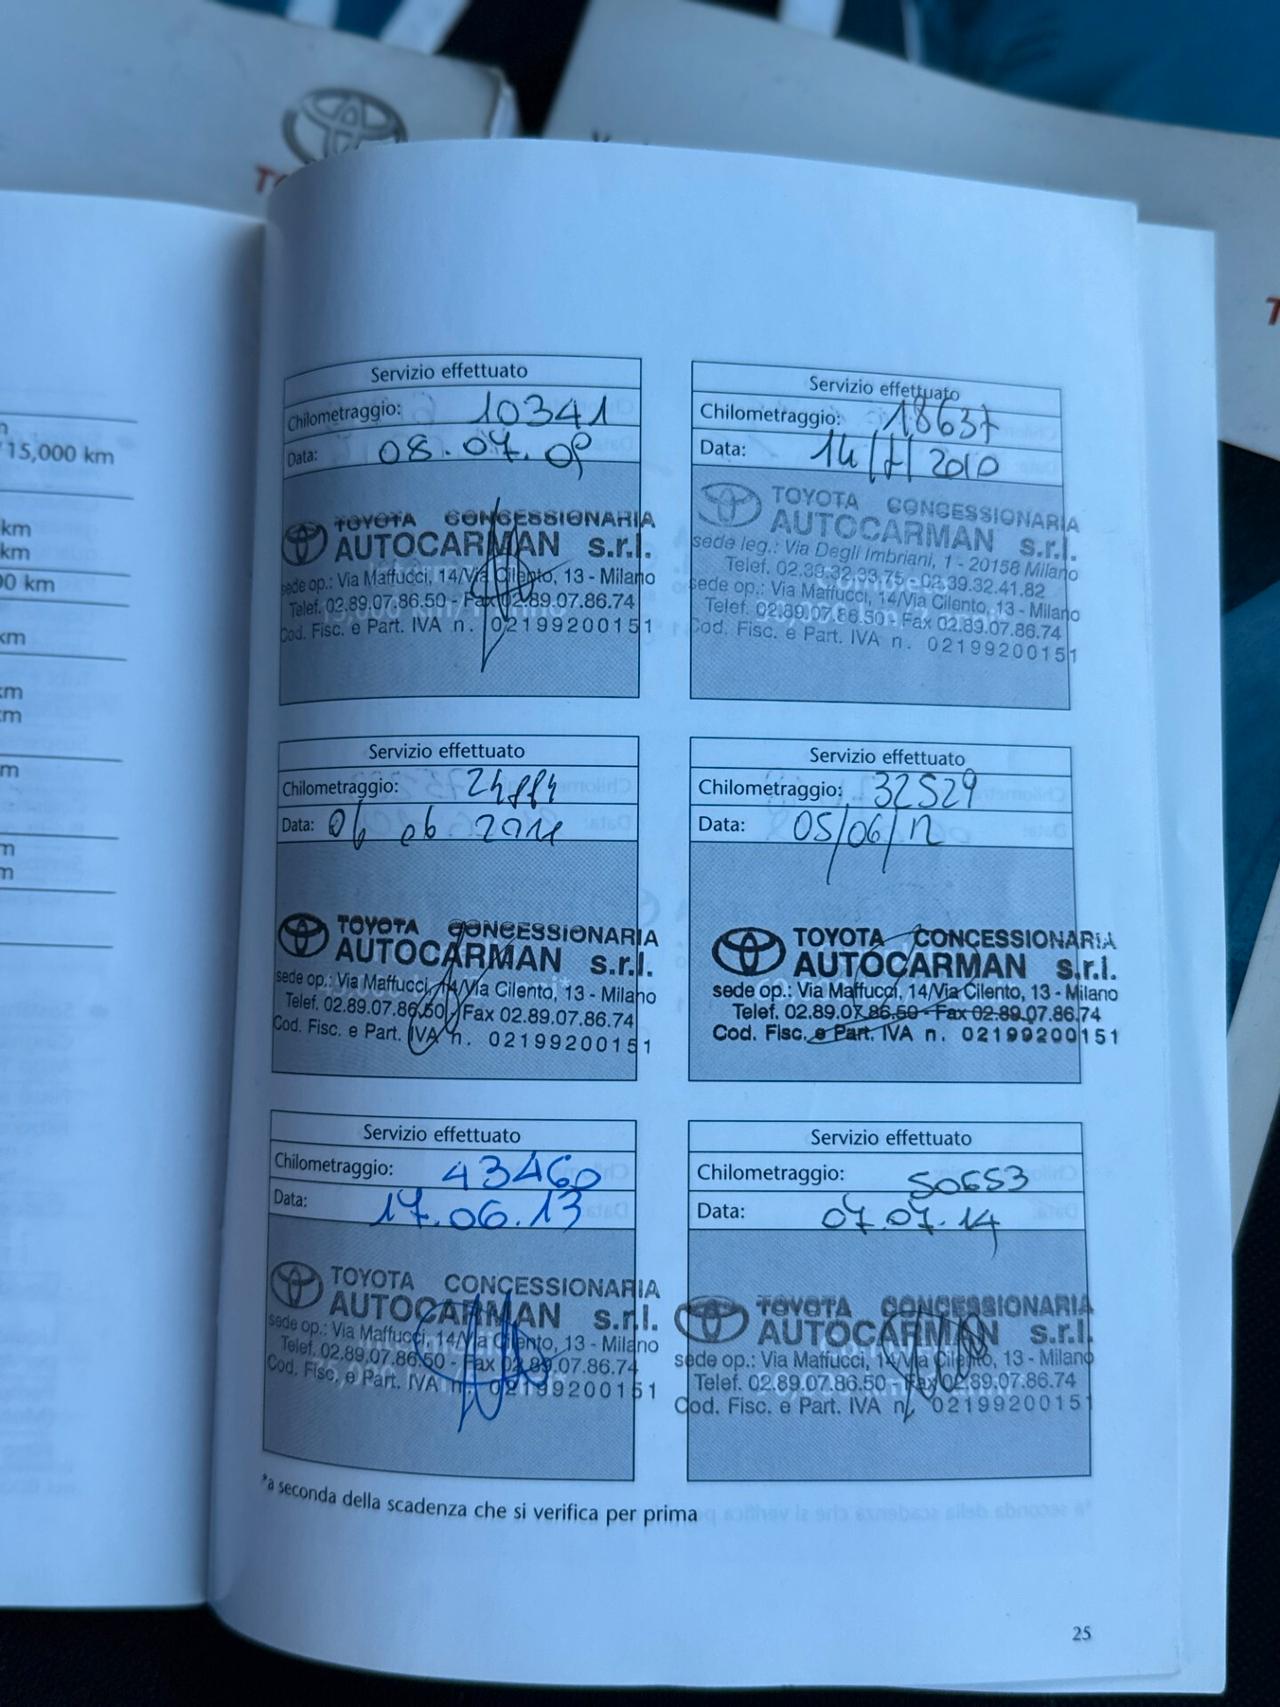 15,000 km
km
km
00 km
km
km
km
Servizio effettuato
Chilometraggio: 10341
Data: 08.07.09
TOYOTA CONCESSIONARIA
AUTOCARMAN s.r.l.
sede op.: Via Maffucci, 14/Via Cilento, 13 - Milano
Telef. 02.89.07.86.50 - Fax 02.89.07.86.74
Cod. Fisc. e Part. IVA n. 02199200151
Servizio effettuato
Chilometraggio: 18637
Data: 14/7/2010
TOYOTA CONCESSIONARIA
AUTOCARMAN s.r.l.
sede leg.: Via Degli Imbriani, 1 - 20158 Milano
Telef. 02.39.32.33.75 - 02.39.32.41.82
sede op.: Via Maffucci, 14/Via Cilento, 13 - Milano
Telef. 02.89.07.86.50 - Fax 02.89.07.86.74
Cod. Fisc. e Part. IVA n. 02199200151
Servizio effettuato
Chilometraggio:
Data: 06 06 2011
TOYOTA CONCESSIONARIA
AUTOCARMAN s.r.l.
sede op.: Via Maffucci, 14/Via Cilento, 13 - Milano
Telef. 02.89.07.86.50 - Fax 02.89.07.86.74
Cod. Fisc. e Part. IVA n. 02199200151
Servizio effettuato
Chilometraggio: 32529
Data: 05/06/12
TOYOTA CONCESSIONARIA
AUTOCARMAN s.r.l.
sede op.: Via Maffucci, 14/Via Cilento, 13 - Milano
Telef. 02.89.07.86.50 - Fax 02.89.07.86.74
Cod. Fisc. e Part. IVA n. 02199200151
Servizio effettuato
Chilometraggio: 43460
Data: 17.06.13
TOYOTA CONCESSIONARIA
AUTOCARMAN s.r.l.
sede op.: Via Maffucci, 14/Via Cilento, 13 - Milano
Telef. 02.89.07.86.50 - Fax 02.89.07.86.74
Cod. Fisc. e Part. IVA n. 02199200151
Servizio effettuato
Chilometraggio: 50653
Data: 07.07.14
TOYOTA CONCESSIONARIA
AUTOCARMAN s.r.l.
sede op.: Via Maffucci, 14/Via Cilento, 13 - Milano
Telef. 02.89.07.86.50 - Fax 02.89.07.86.74
Cod. Fisc. e Part. IVA n. 02199200151
*a seconda della scadenza che si verifica per prima
25